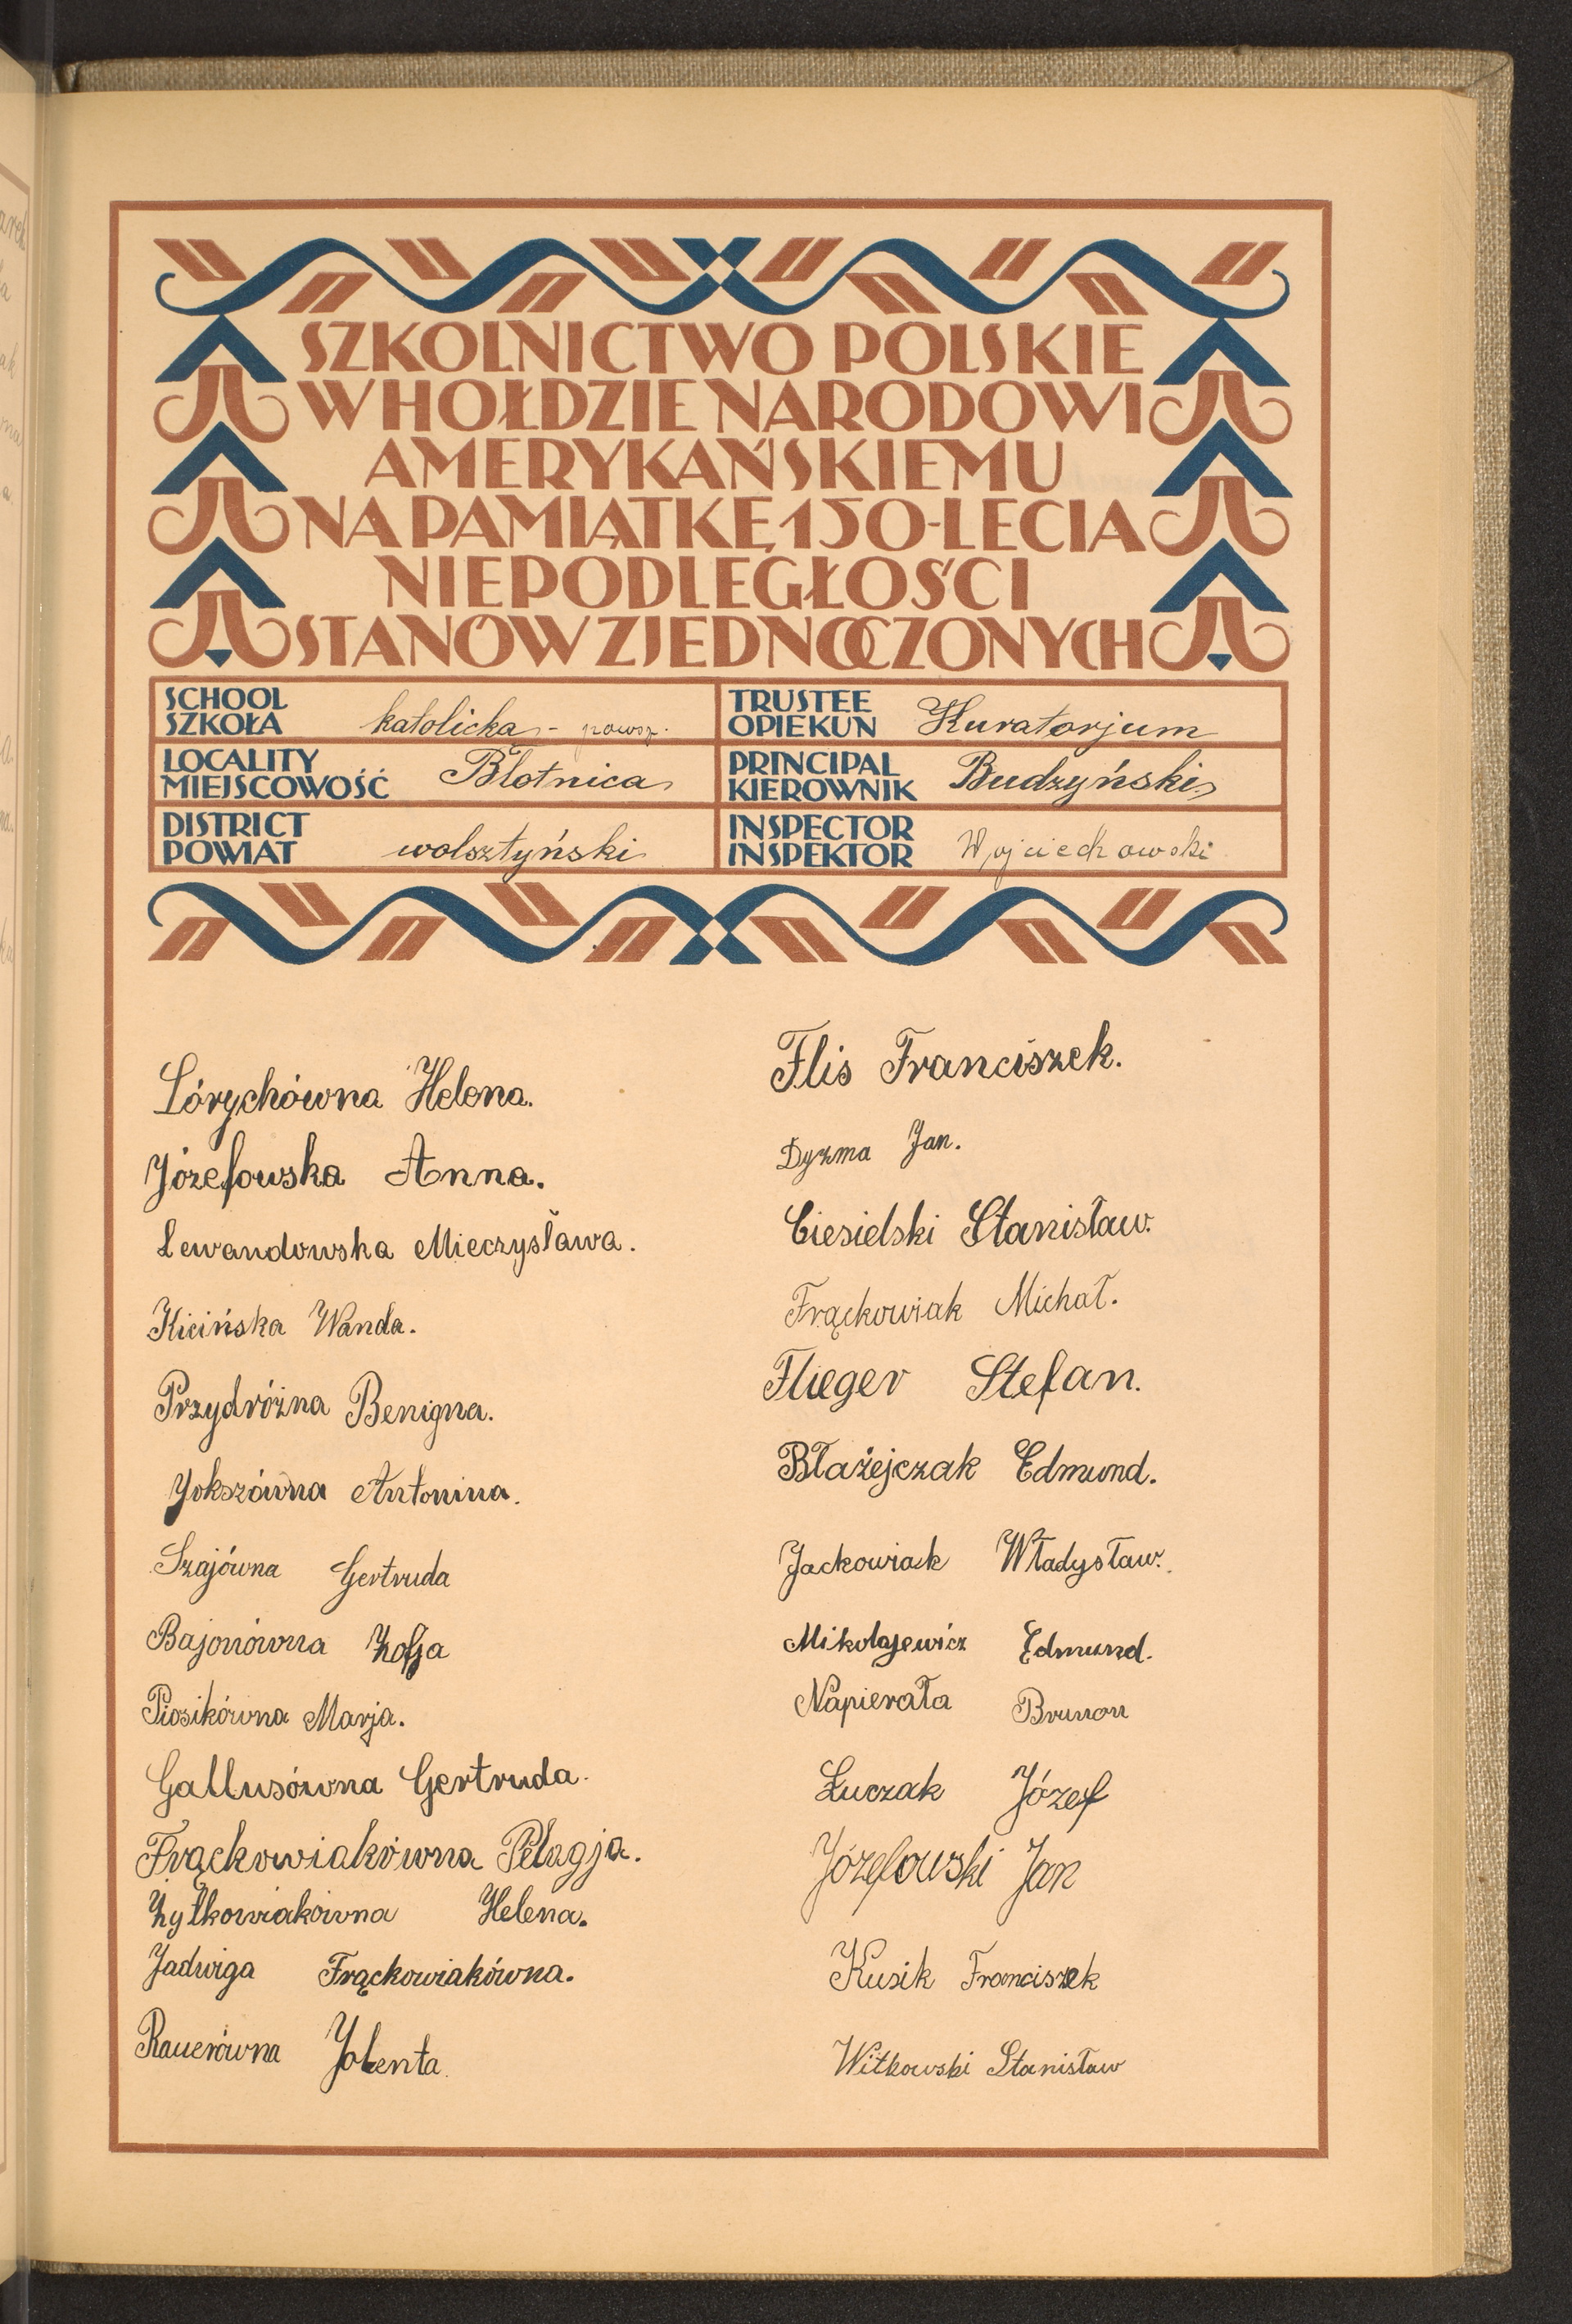 SZKOLNICTWO POLSKIE
W HOŁDZIE NARODOWI
AMERYKAŃSKIEMU
NA PAMIĄTKĘ 150-LECIA
NIEPODLEGŁOŚCI
STANÓW ZJEDNOCZONYCH
SCHOOL
SZKOŁA katolicka - powsz.
TRUSTEE
OPIEKUN Kuratorjum
LOCALITY
MIEJSCOWOŚĆ Błotnica
PRINCIPAL
KIEROWNIK Budzyński
DISTRICT
POWIAT wolsztyński
INSPECTOR
INSPEKTOR Wojciechowski
Lórychówna Helena.
Józefowska Anna.
Lewandowska Mieczysława.
Kicińska Wanda.
Przydróżna Benigna.
Jokszówna Antonina.
Szajówna Gertruda
Bajonówna Zofja
Piosikówna Marja.
Gallusówna Gertruda.
Frąckowiakówna Pelagja.
Żyłkowiakówna Helena.
Jadwiga Frąckowiakówna.
Rauerówna Jolenta.
Flis Franciszek.
Dyzma Jan.
Ciesielski Stanisław.
Frąckowiak Michał.
Flieger Stefan.
Błażejczak Edmund.
Jackowiak Władysław.
Mikołajewicz Edmund.
Napierała Brunon
Łuczak Józef
Józefowski Jan
Kusik Franciszek
Witkowski Stanisław